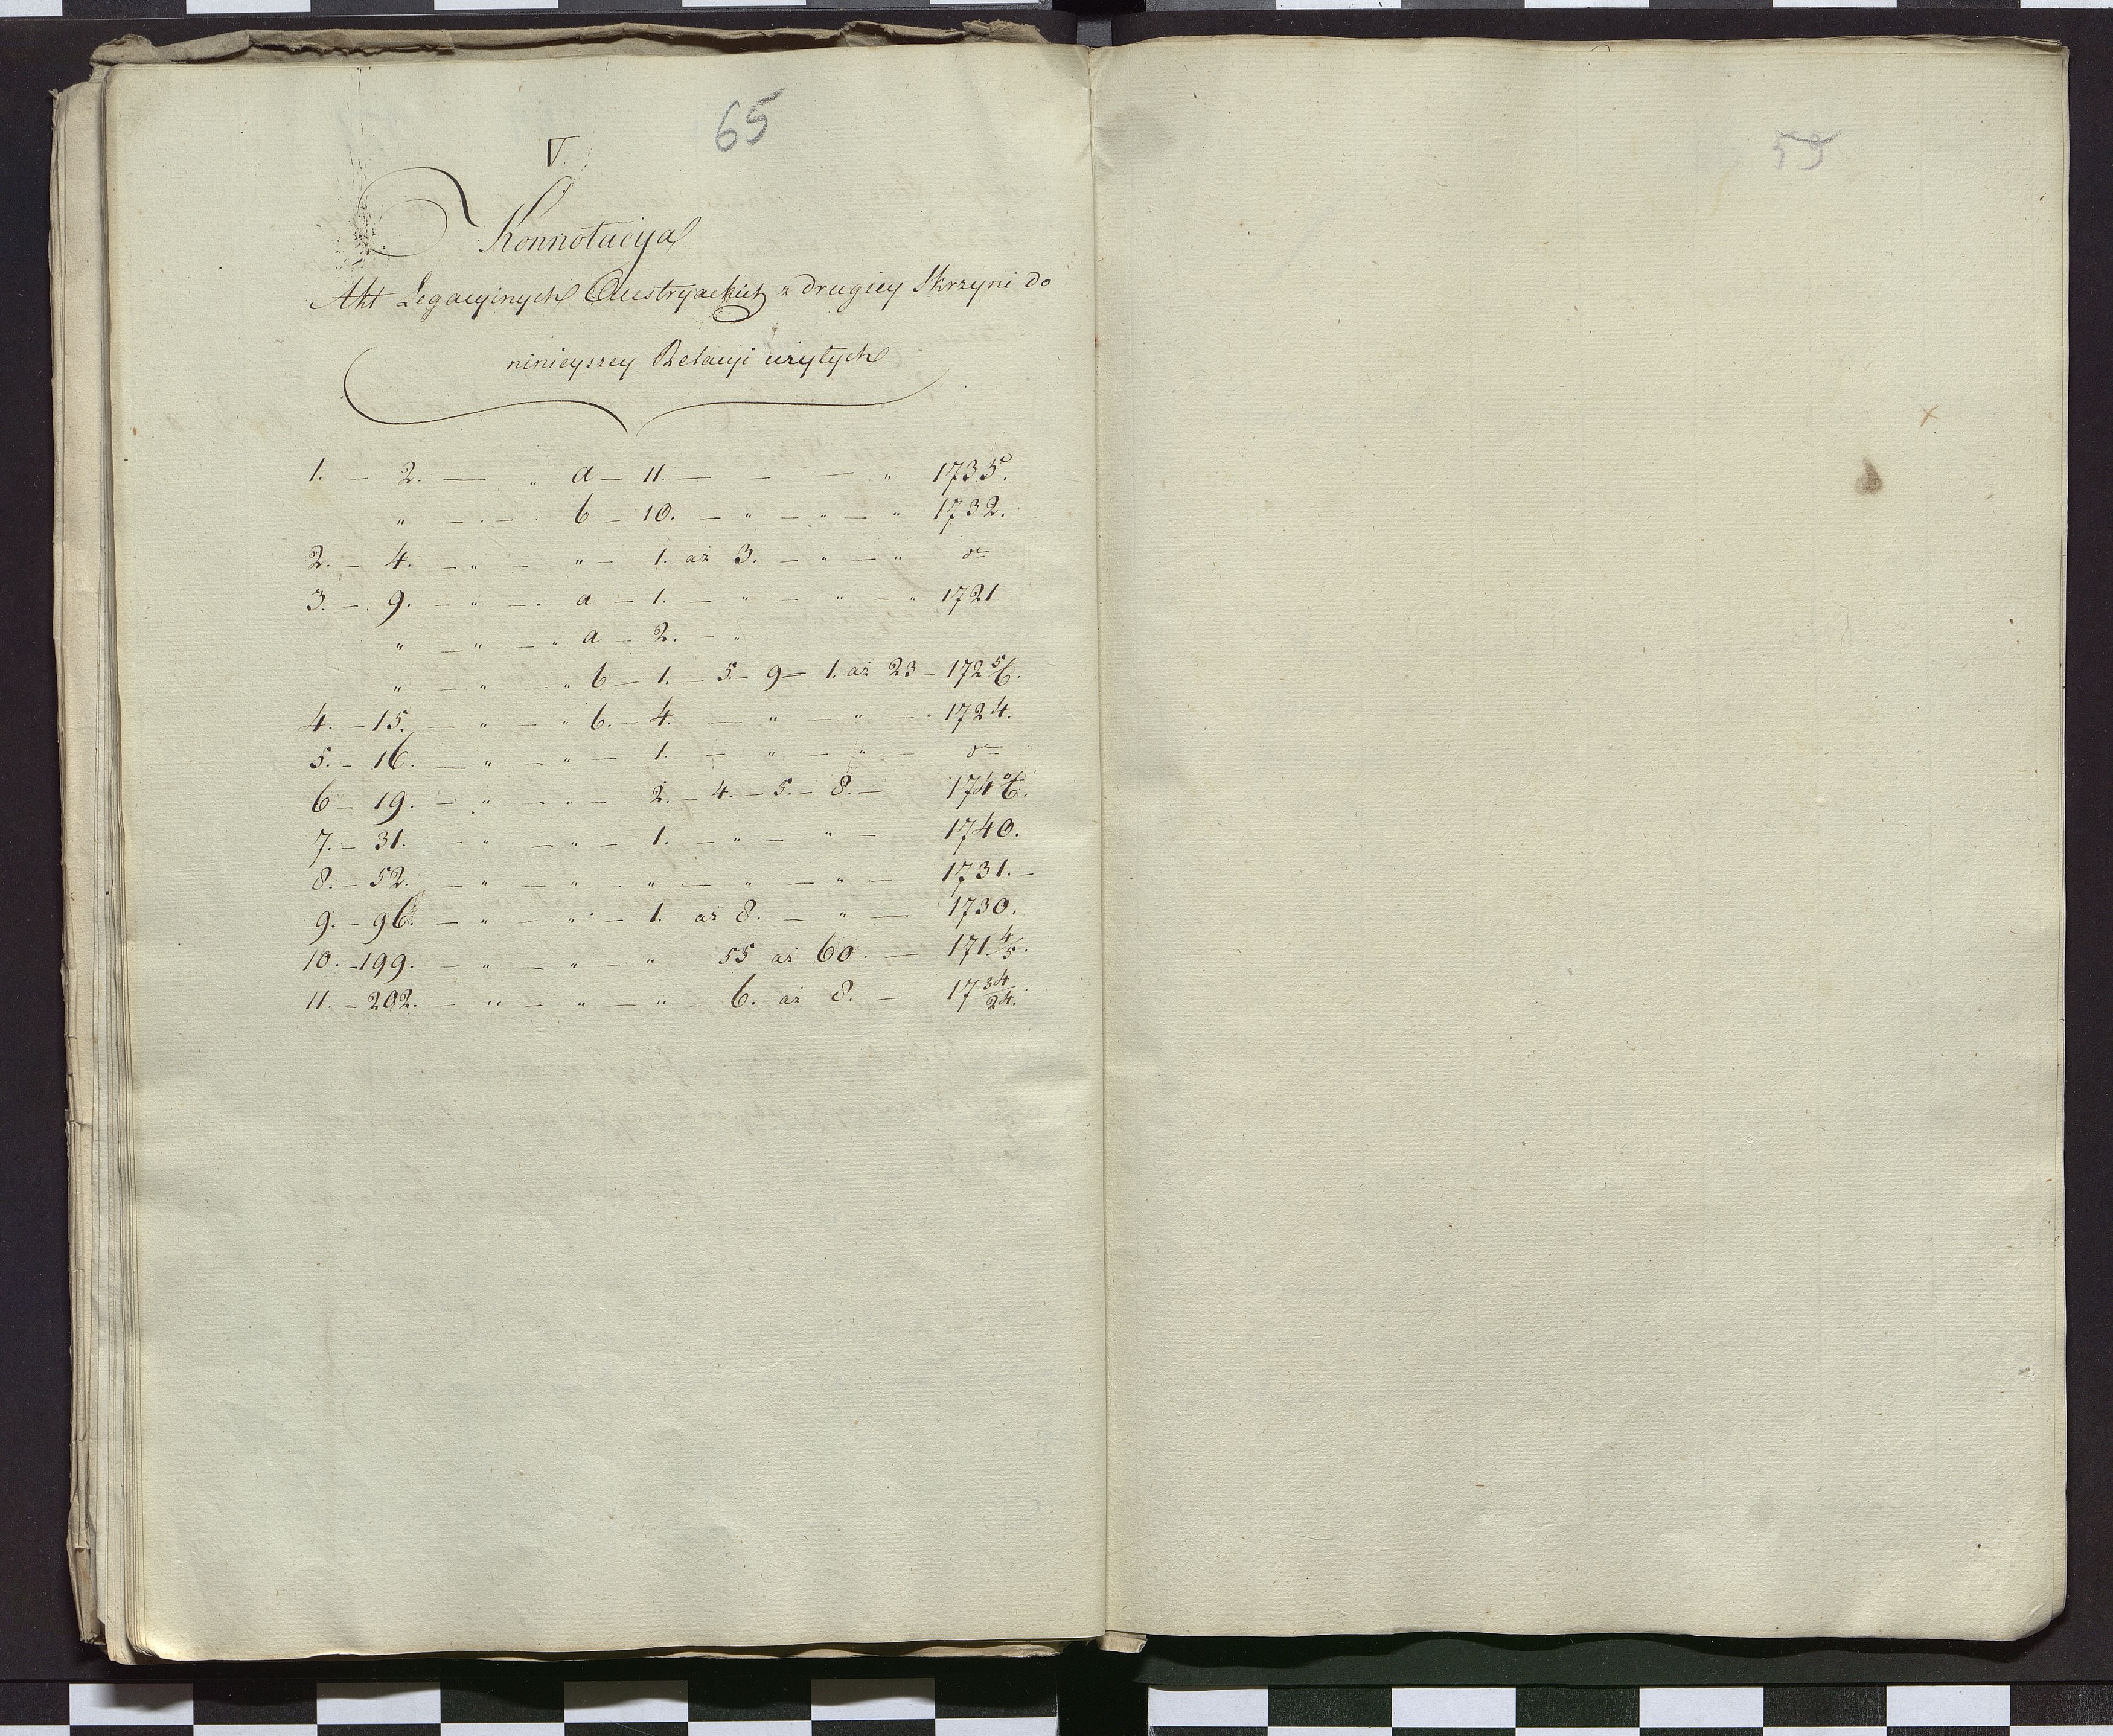 65
V.
Konnotacyia
Akt Legacyinych Austryackich z drugiey Skrzyni do
ninieyszey Relacyi użytych
1. — 2. — „ a — 11. — — — „ 1735.
„ — . — . b — 10. — „ — „ — „ 1732.
2. — 4. — „ — „ — 1. aż 3. — „ — „ do
3. — 9. — „ — . a — 1. — „ — „ — „ 1721
„ — „ — „ a — 2. — „
„ — „ — „ b — 1. — 5. — 9 — 1. aż 23 — 172 5/6.
4. — 15. — „ — „ b. — 4. — „ — „ — . 1724.
5. — 16. — „ — „ — 1. — „ — „ — do
6 — 19. — „ — „ — 2. — 4. — 5. — 8. — 174 0/6.
7. — 31. — „ — „ — 1. — „ — „ — 1740.
8. — 52. — „ — „ . „ — „ — „ — 1731. —
9. — 96. — „ — „ — 1. aż 8. — „ — 1730.
10. — 199. — „ — „ — „ 55 aż 60. — 171 4/5.
11. — 202. — „ — „ — „ — 6. aż 8. — 17 34/24.
59